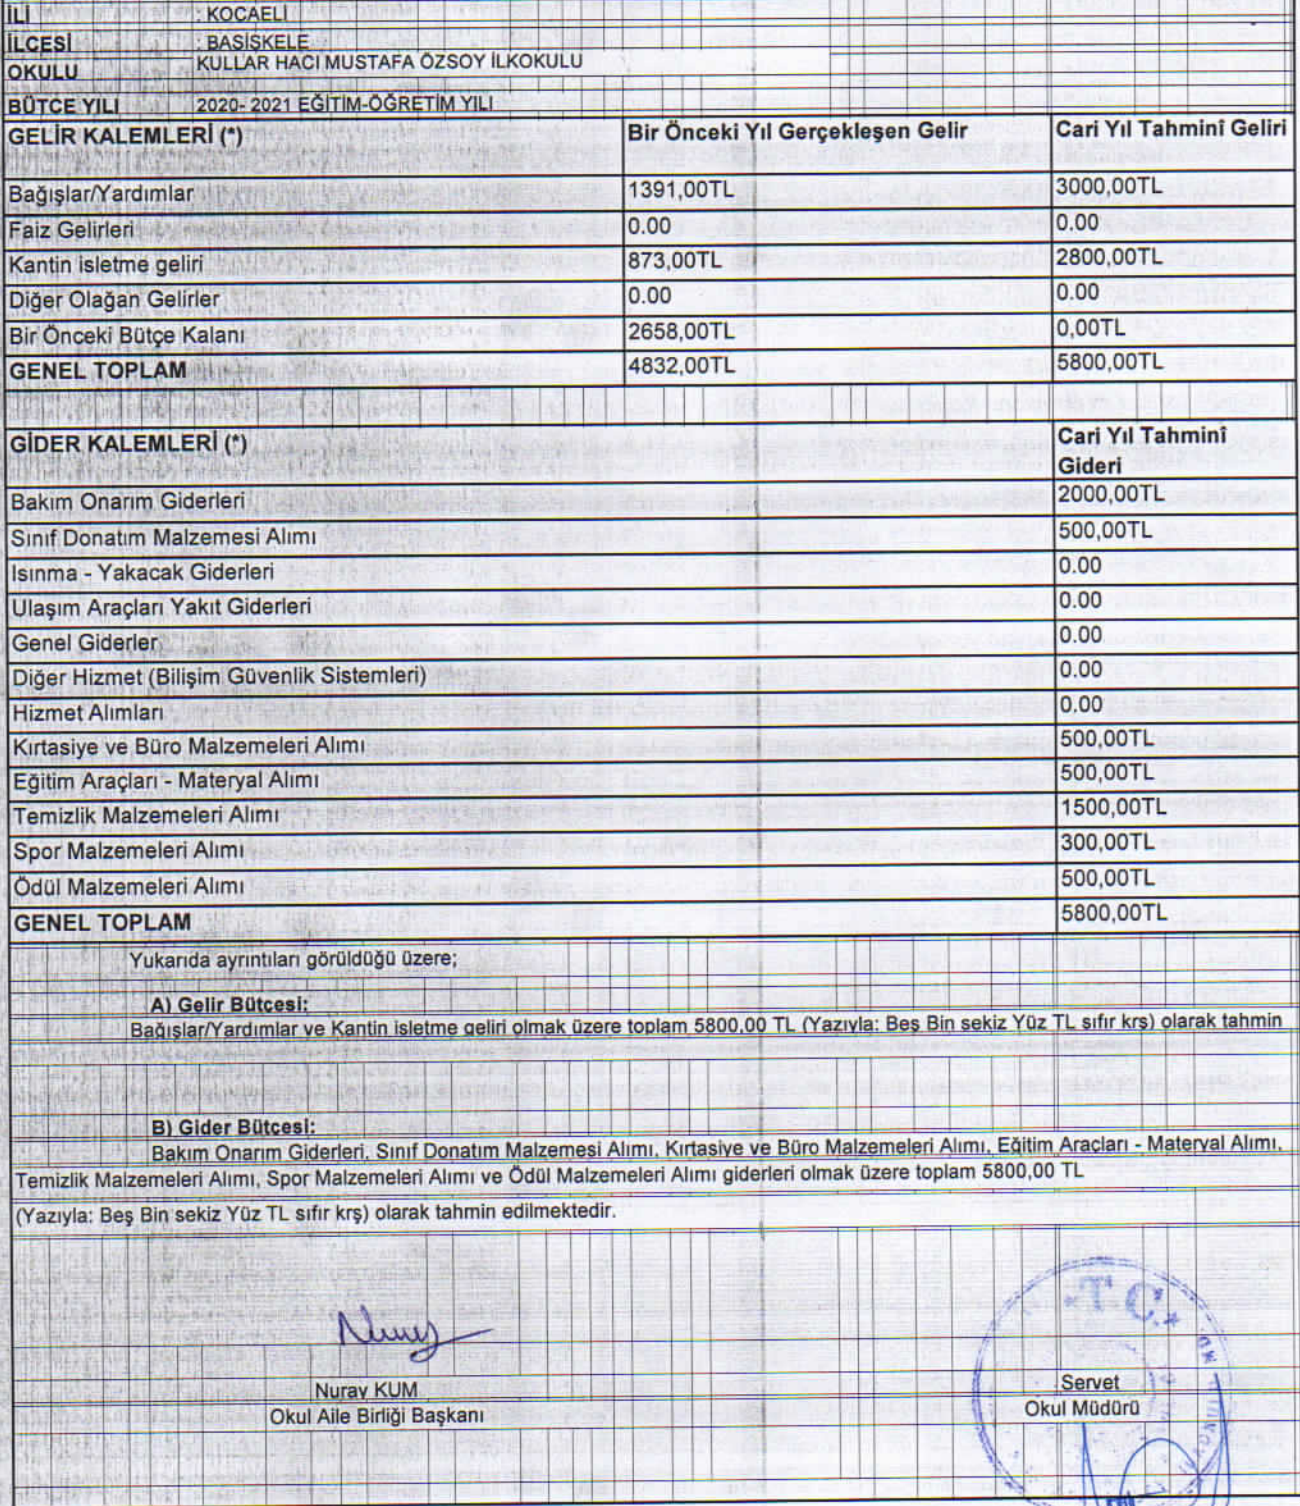 İLİ : KOCAELİ
İLÇESİ : BAŞİSKELE
OKULU KULLAR HACI MUSTAFA ÖZSOY İLKOKULU
BÜTÇE YILI 2020- 2021 EĞİTİM-ÖĞRETİM YILI
GELİR KALEMLERİ (*) Bir Önceki Yıl Gerçekleşen Gelir Cari Yıl Tahminî Geliri
Bağışlar/Yardımlar 1391,00TL 3000,00TL
Faiz Gelirleri 0.00 0.00
Kantin işletme geliri 873,00TL 2800,00TL
Diğer Olağan Gelirler 0.00 0.00
Bir Önceki Bütçe Kalanı 2658,00TL 0,00TL
GENEL TOPLAM 4832,00TL 5800,00TL
GİDER KALEMLERİ (*) Cari Yıl Tahminî
Gideri
Bakım Onarım Giderleri 2000,00TL
Sınıf Donatım Malzemesi Alımı 500,00TL
Isınma - Yakacak Giderleri 0.00
Ulaşım Araçları Yakıt Giderleri 0.00
Genel Giderler 0.00
Diğer Hizmet (Bilişim Güvenlik Sistemleri) 0.00
Hizmet Alımları 0.00
Kırtasiye ve Büro Malzemeleri Alımı 500,00TL
Eğitim Araçları - Materyal Alımı 500,00TL
Temizlik Malzemeleri Alımı 1500,00TL
Spor Malzemeleri Alımı 300,00TL
Ödül Malzemeleri Alımı 500,00TL
GENEL TOPLAM 5800,00TL
Yukarıda ayrıntıları görüldüğü üzere;
A) Gelir Bütçesi:
Bağışlar/Yardımlar ve Kantin işletme geliri olmak üzere toplam 5800,00 TL (Yazıyla: Beş Bin sekiz Yüz TL sıfır krş) olarak tahmin
B) Gider Bütçesi:
Bakım Onarım Giderleri, Sınıf Donatım Malzemesi Alımı, Kırtasiye ve Büro Malzemeleri Alımı, Eğitim Araçları - Materyal Alımı,
Temizlik Malzemeleri Alımı, Spor Malzemeleri Alımı ve Ödül Malzemeleri Alımı giderleri olmak üzere toplam 5800,00 TL
(Yazıyla: Beş Bin sekiz Yüz TL sıfır krş) olarak tahmin edilmektedir.
T.C.
Nuray KUM Servet
Okul Aile Birliği Başkanı Okul Müdürü